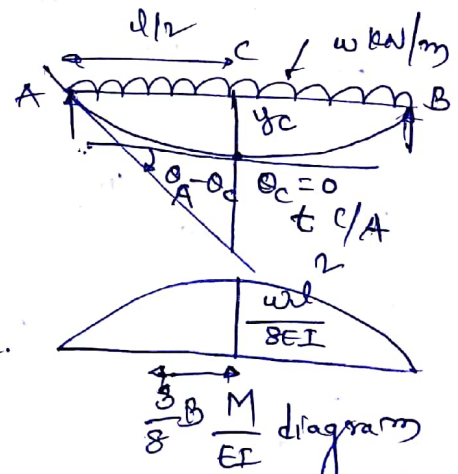 l/2
C
w kN/m
A
B
yc
θA-θc θc=0
t C/A
wl²
8EI
3/8 B M/EI diagram